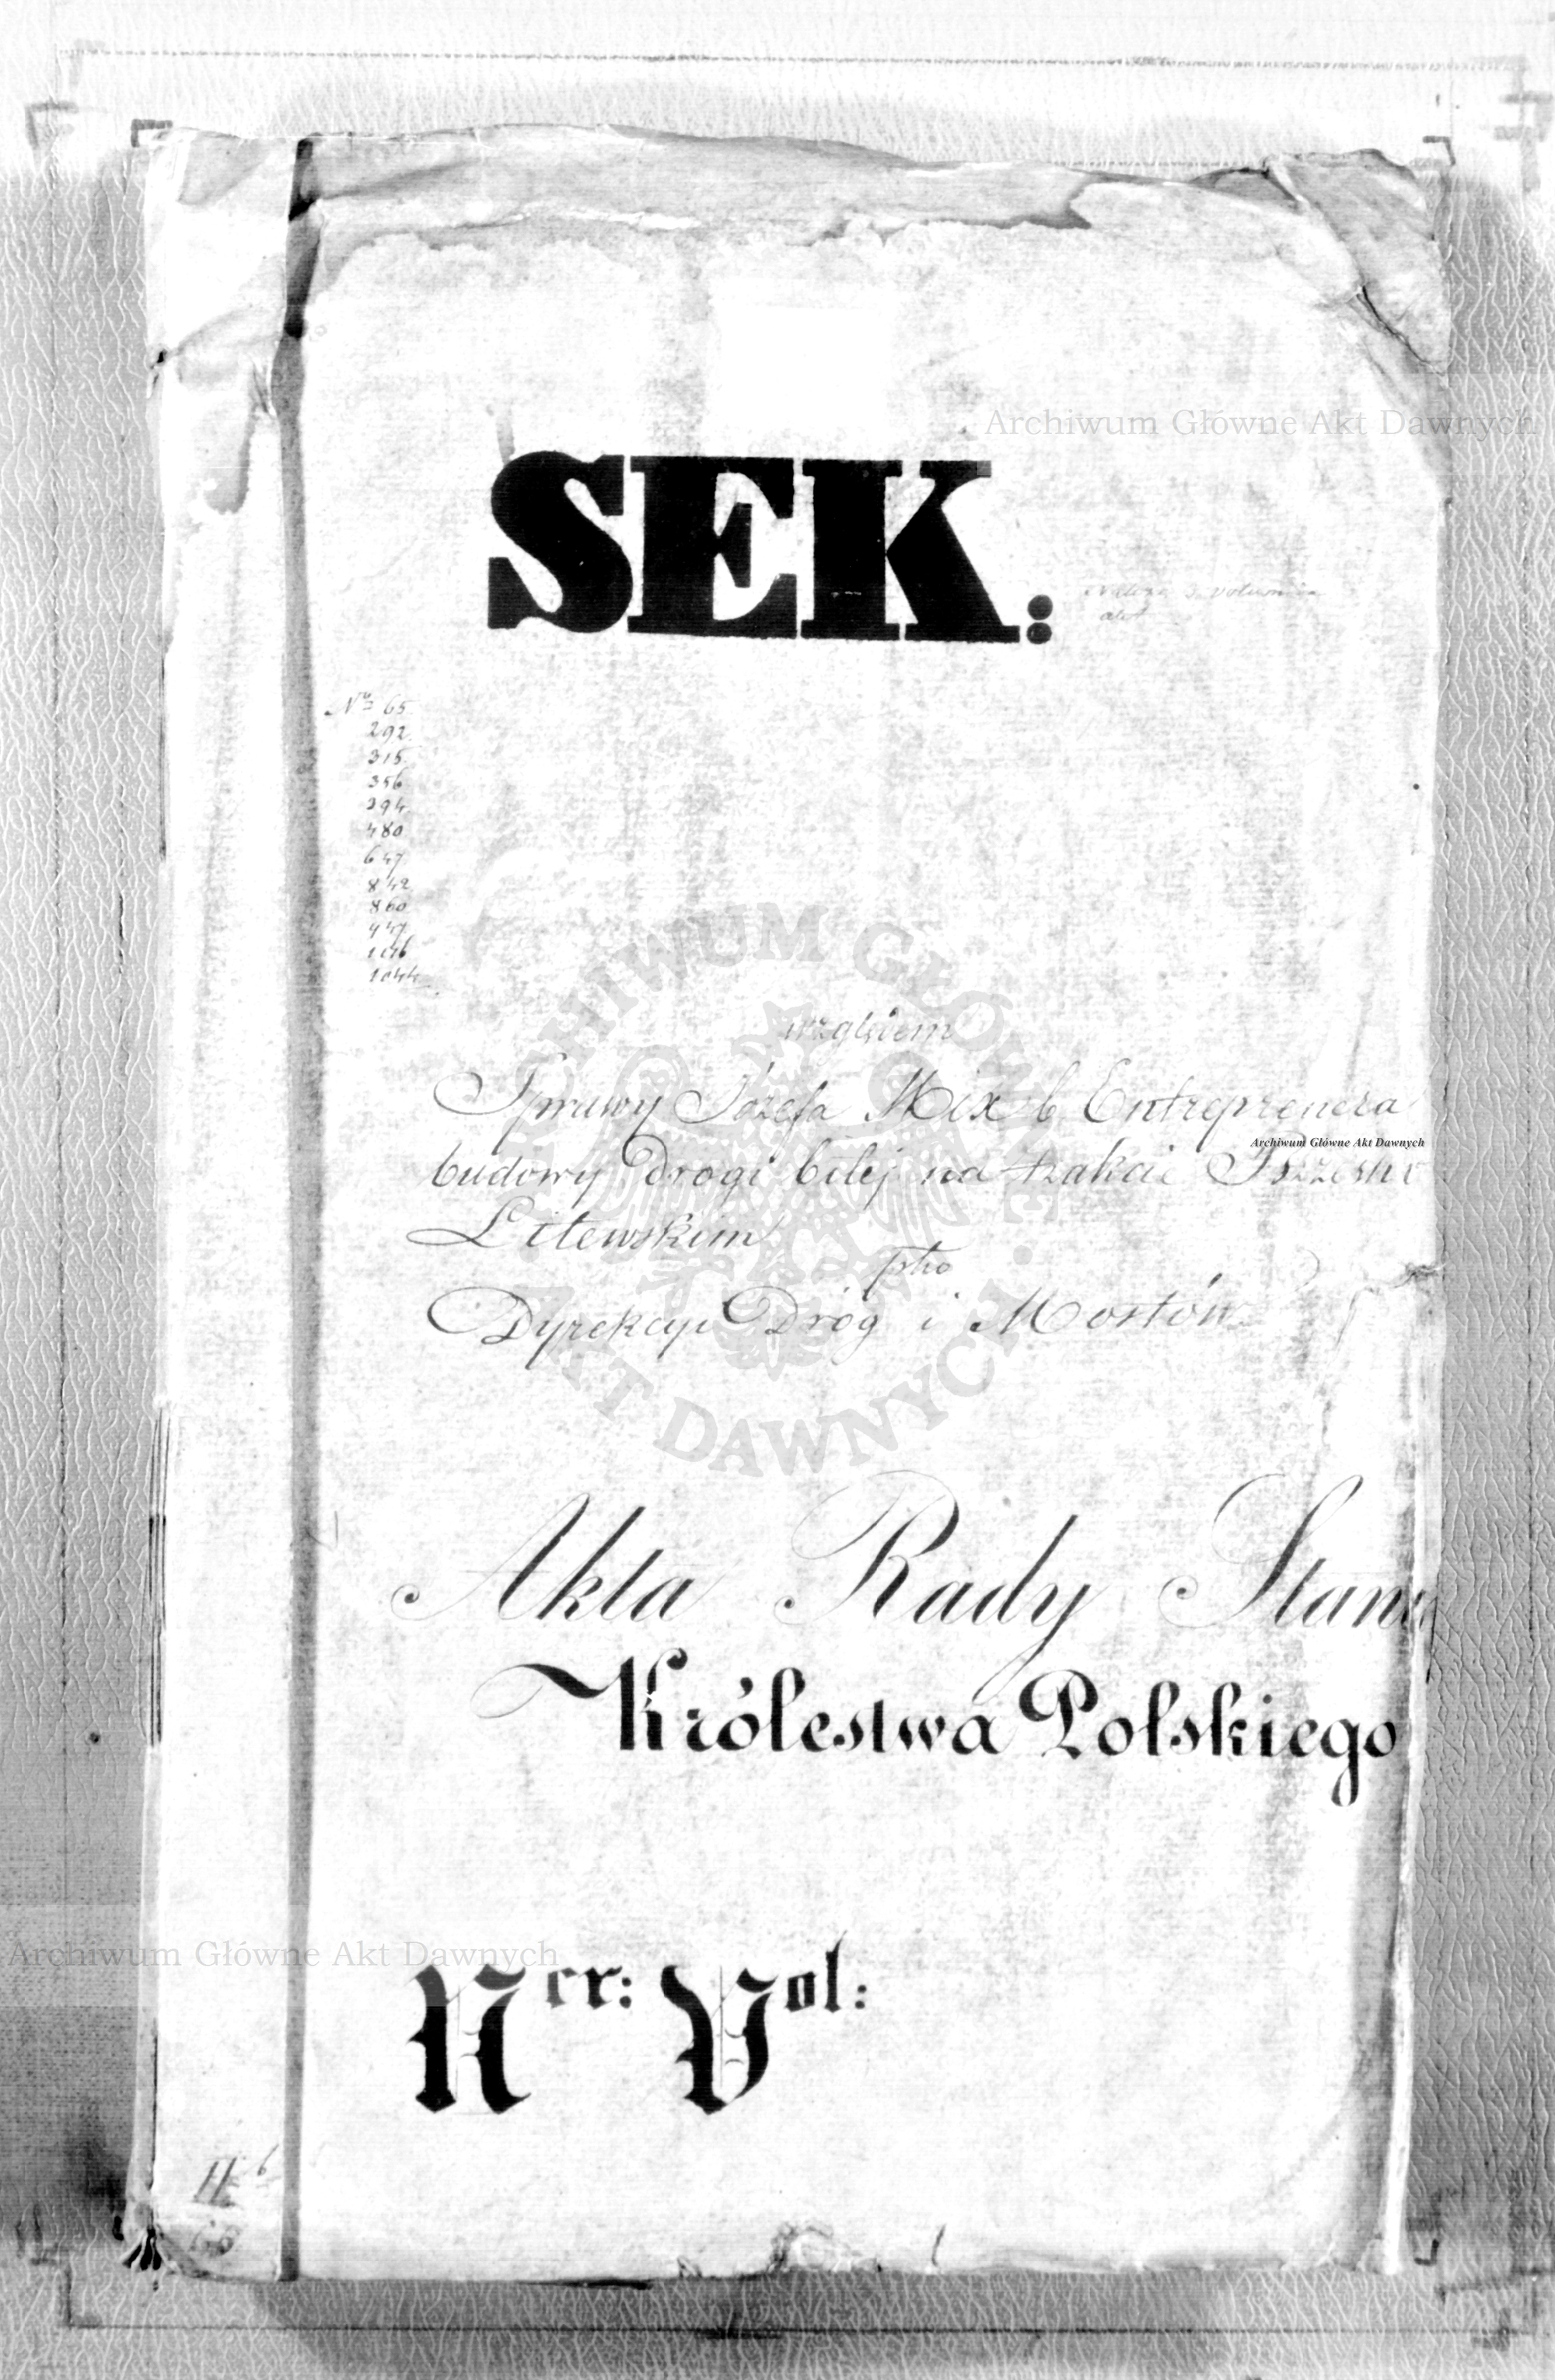 Archiwum Główne Akt Dawnych
SEK:
akt
Nº 65.
292.
315.
356
394.
480
647.
842.
860
947.
1044.
względem
Sprawy Józefa Mix b Entreprenera
Archiwum Główne Akt Dawnych
budowy Drogi bitej na trakcie Brzesko
Litewskim
pko
Dyrekcyi Dróg i Mostów
ARCHIWUM GŁÓWNE
AKT DAWNYCH
Akta Rady Stanu
Królestwa Polskiego
Archiwum Główne Akt Dawnych
Ner: Vol: